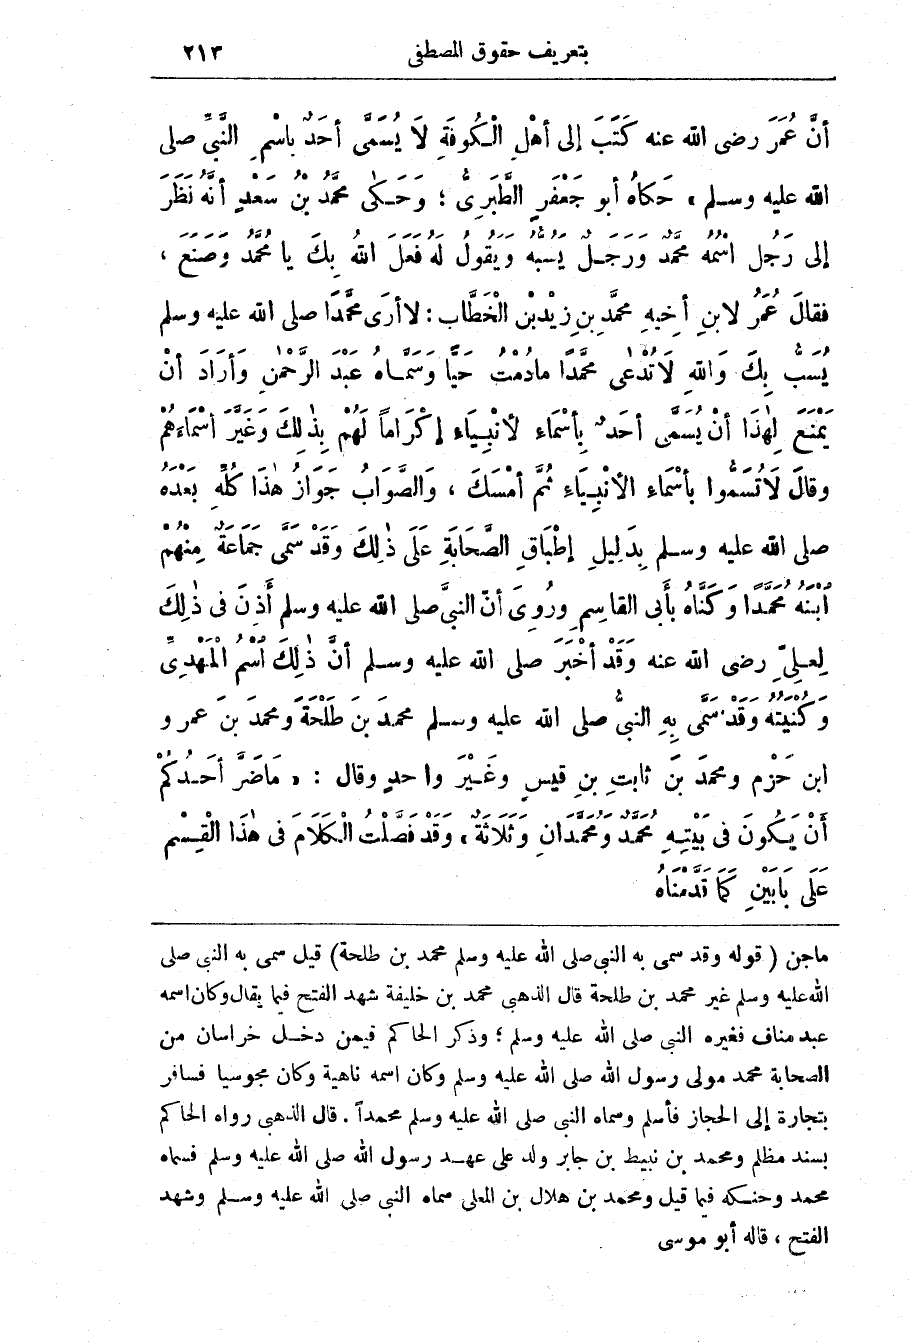 بتعريف حقوق المصطفى ٢١٣
أنَّ عُمَرَ رضى الله عنه كَتَبَ إلى أهْلِ الْكُوفَةِ لَا يُسَمَّى أحَدٌ باسْمِ النَّبِىِّ صلى
الله عليه وسـلم ، حَكاهُ أبو جَعْفَرٍ الطَّبَرِىُّ ؛ وَحَـكَى مُحَمَّدُ بْنُ سَعْدٍ أنَّهُ نَظَرَ
إلى رَجُلٍ اسْمُهُ مُحَمَّدٌ وَرَجـلٌ يَسُبُّهُ وَيَقُولُ لَهُ فَعَلَ اللهُ بِكَ يا مُحَمَّدُ وَصَنَعَ ،
فقالَ عُمَرُ لابنِ أخيهِ محمَّدِ بنِ زيْدِبْنِ الْخَطَّابِ : لاأرَى مُحَمَّدًا صلى الله عليه وسلم
يُسَبُّ بِكَ وَاللهِ لَاتُدْعَى مُحَمَّدًا مادُمْتُ حَيًّا وَسَمَّـاه عبدَ الرَّحْمٰنِ وَأرَادَ أنْ
يَمْنَعَ لِهٰذَا أنْ يُسَمَّى أحَدٌ بِأسْمَاءِ لأنْبِـيَاءِ إكْرَاماً لَهُمْ بِذٰلِكَ وَغَيَّرَ أسْمَاءَهُمْ
وقالَ لَاتُسَمُّوا بأسْمَاءِ الأنْبِـيَاءِ ثُمَّ أمْسَكَ ، وَالصَّوَابُ جَوَازُ هٰذَا كُلِّهِ بَعْدَهُ
صلى الله عليه وسـلم بِدَلِيلِ إطْبَاقِ الصَّحَابَةِ عَلَى ذٰلِكَ وَقَدْ سَمَّى جَمَاعَةٌ مِنْهُمْ
ابْنَهُ مُحَمَّدًا وَكَنَّاهُ بأَبى القاسِمِ ورُوِىَ أنّ النبىَّ صلى الله عليه وسلم أَذِنَ فى ذٰلِكَ
لِعـلِىٍّ رضى الله عنه وَقَدْ أخْبَرَ صلى الله عليه وسـلم أنَّ ذٰلِكَ اسْمُ الْمَهْدِىِّ
وَكُنْيَتُهُ وَقَدْ سَمَّى بِهِ النبىُّ صلى الله عليه وسـلم محمدَ بنَ طَلْحَةَ ومحمدَ بنَ عمرو
ابن حَزْم ومحمدَ بَنَ ثابتِ بنِ قيسٍ وغَـيْرَ واحدٍ وقال : ، مَاضَرَّ أحَـدُكُمْ
أنْ يَـكُونَ فى بَيْتِـهِ مُحَمَّدٌ ومُحَمَّدَانِ وَثَلَاثَةٌ ، وَقَدْ فَصَّلْتُ الْكَلَامَ فى هٰذَا الْقِسْمِ
عَلَى بَابَيْنِ كَمَا قَدَّمْنَاهُ
ماجن ( قوله وقد سمى به النبى صلى الله عليه وسلم محمد بن طلحة) قيل سمى به النبى صلى
الله عليه وسلم غير محمد بن طلحة قال الذهبى محمد بن خليفة شهد الفتح فيما يقال وكان اسمه
عبد مناف فغيره النبى صلى الله عليه وسلم ؛ وذكر الحاكم فيمن دخـل خراسان من
الصحابة محمد مولى رسول الله صلى الله عليه وسلم وكان اسمه ناهية وكان مجوسيا فسافر
بتجارة إلى الحجاز فأسلم وسماه النبى صلى الله عليه وسلم محمداً . قال الذهبى رواه الحاكم
بسند مظلم ومحمد بن نبيط بن جابر ولد على عهـد رسول الله صلى الله عليه وسلم فسماه
محمد وحنـكه فيما قيل ومحمد بن هلال بن المعلى سماه النبى صلى الله عليه وسـلم وشهد
الفتح ، قاله أبو موسى